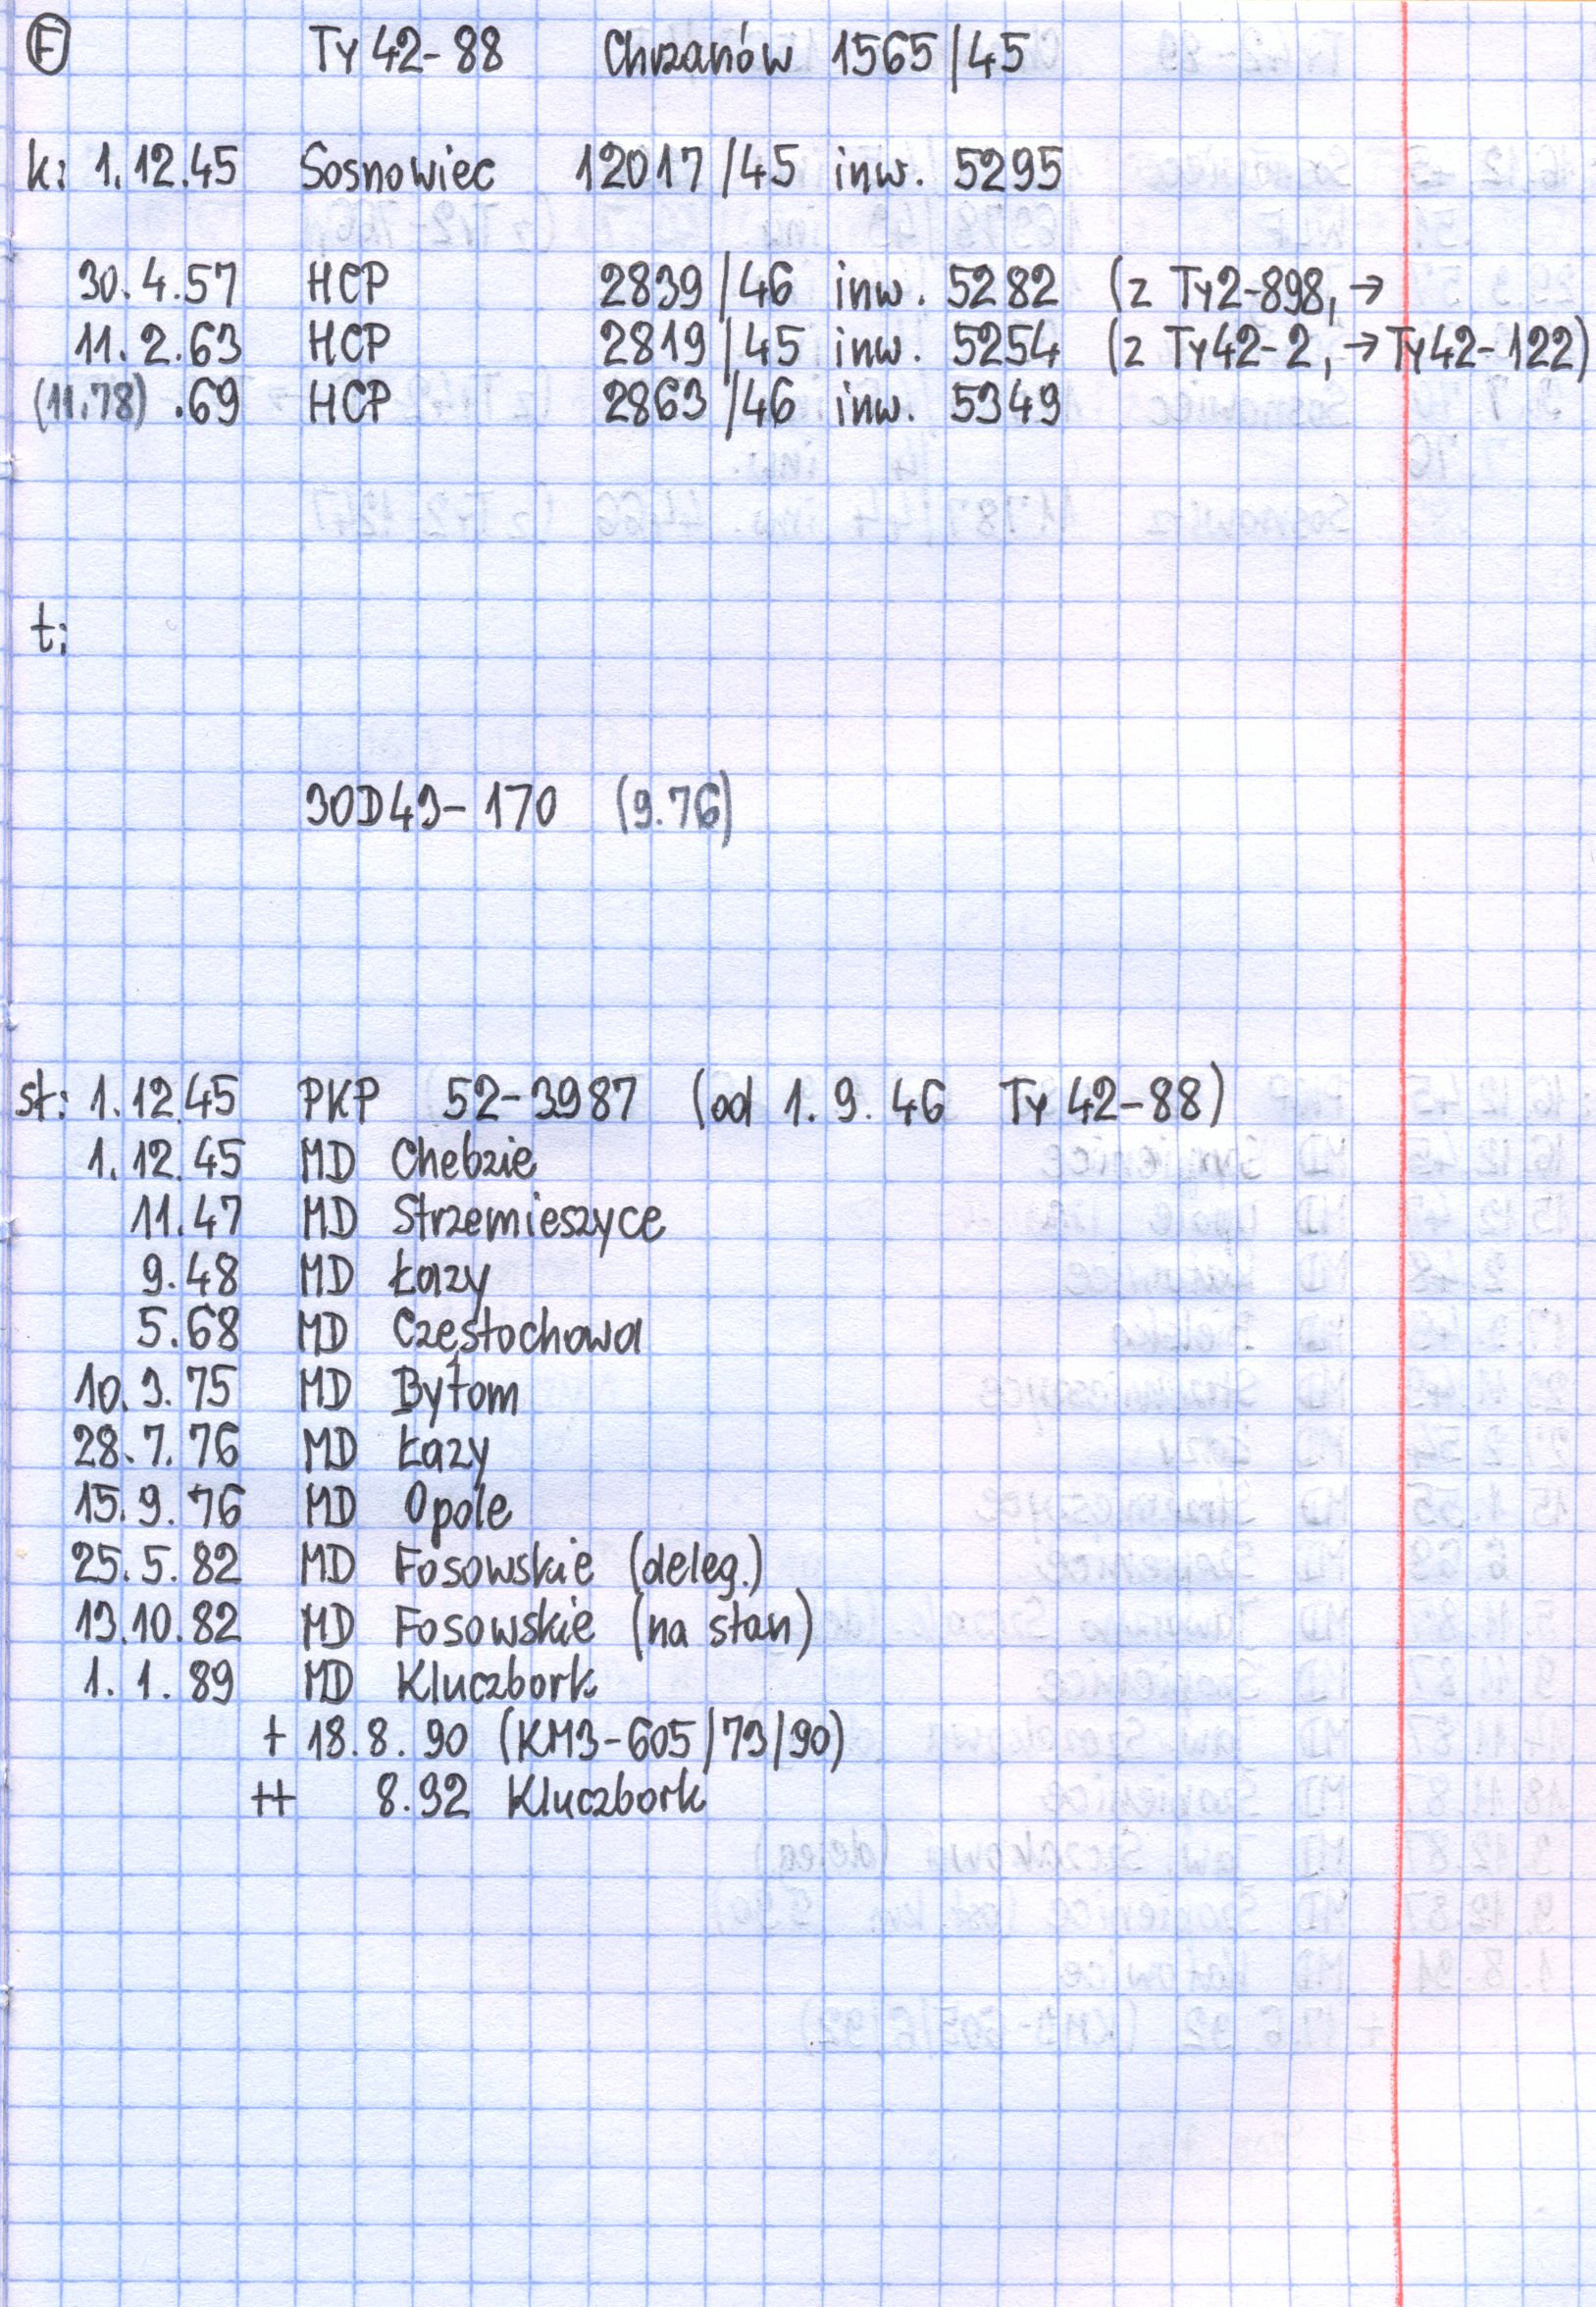 F Ty 42-88 Chrzanów 1565/45
k: 1.12.45 Sosnowiec 12017/45 inw. 5295
30.4.57 HCP 2839/46 inw. 5282 (z Ty2-898, →
11.2.63 HCP 2819/45 inw. 5254 (z Ty42-2, → Ty42-122)
(11.78) .69 HCP 2863/46 inw. 5349
t:
30D43-170 (9.76)
st: 1.12.45 PKP 52-3987 (od 1.9.46 Ty 42-88)
1.12.45 MD Chebzie
11.47 MD Strzemieszyce
9.48 MD Łazy
5.68 MD Częstochowa
10.3.75 MD Bytom
28.7.76 MD Łazy
15.9.76 MD Opole
25.5.82 MD Fosowskie (deleg.)
13.10.82 MD Fosowskie (na stan)
1.1.89 MD Kluczbork
+ 18.8.90 (KM3-605/73/90)
++ 8.92 Kluczbork